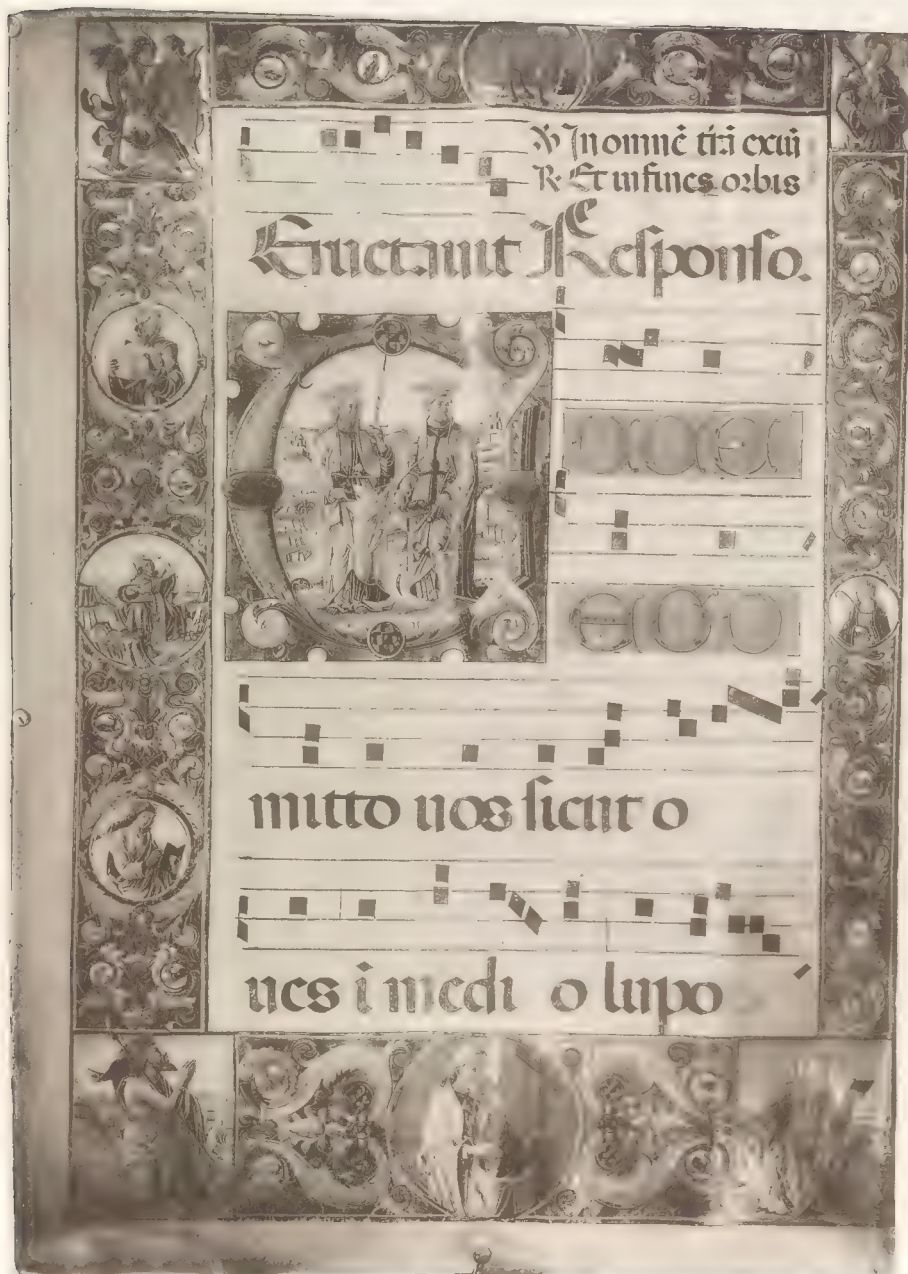 ℣ In omnē tr̄ā exiui
℟ Et in fines orbis
Eructauit Responso.
E
ego
mitto uos sicut o
ues i medi o lupo